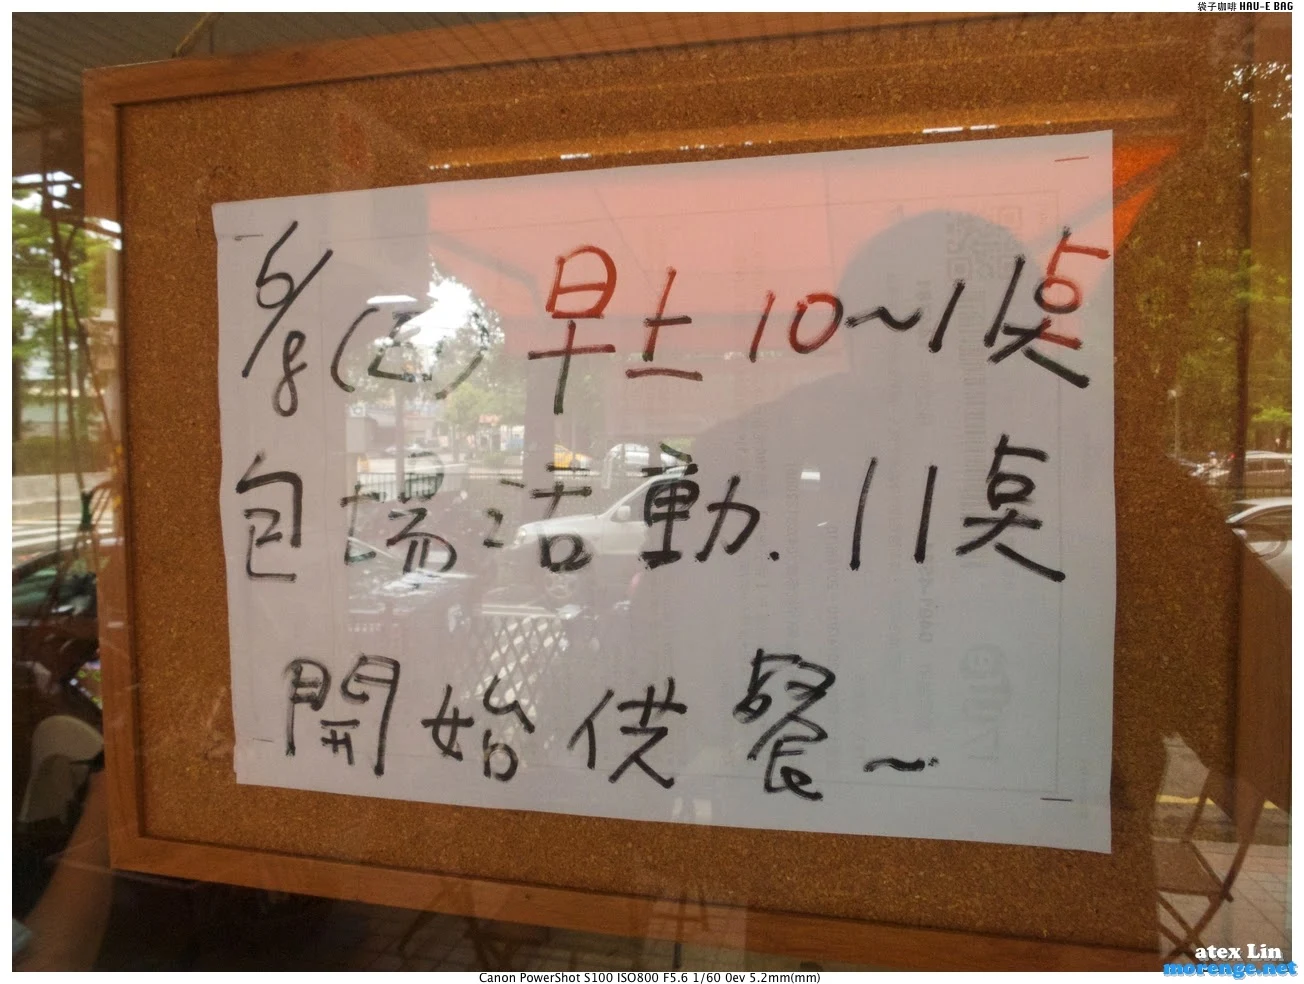 袋子咖啡 HAU-E BAG
6/8(五) 早上10~11点
包場活動. 11点
開始供餐~
atex Lin
morenge.net
Canon PowerShot S100 ISO800 F5.6 1/60 0ev 5.2mm(mm)